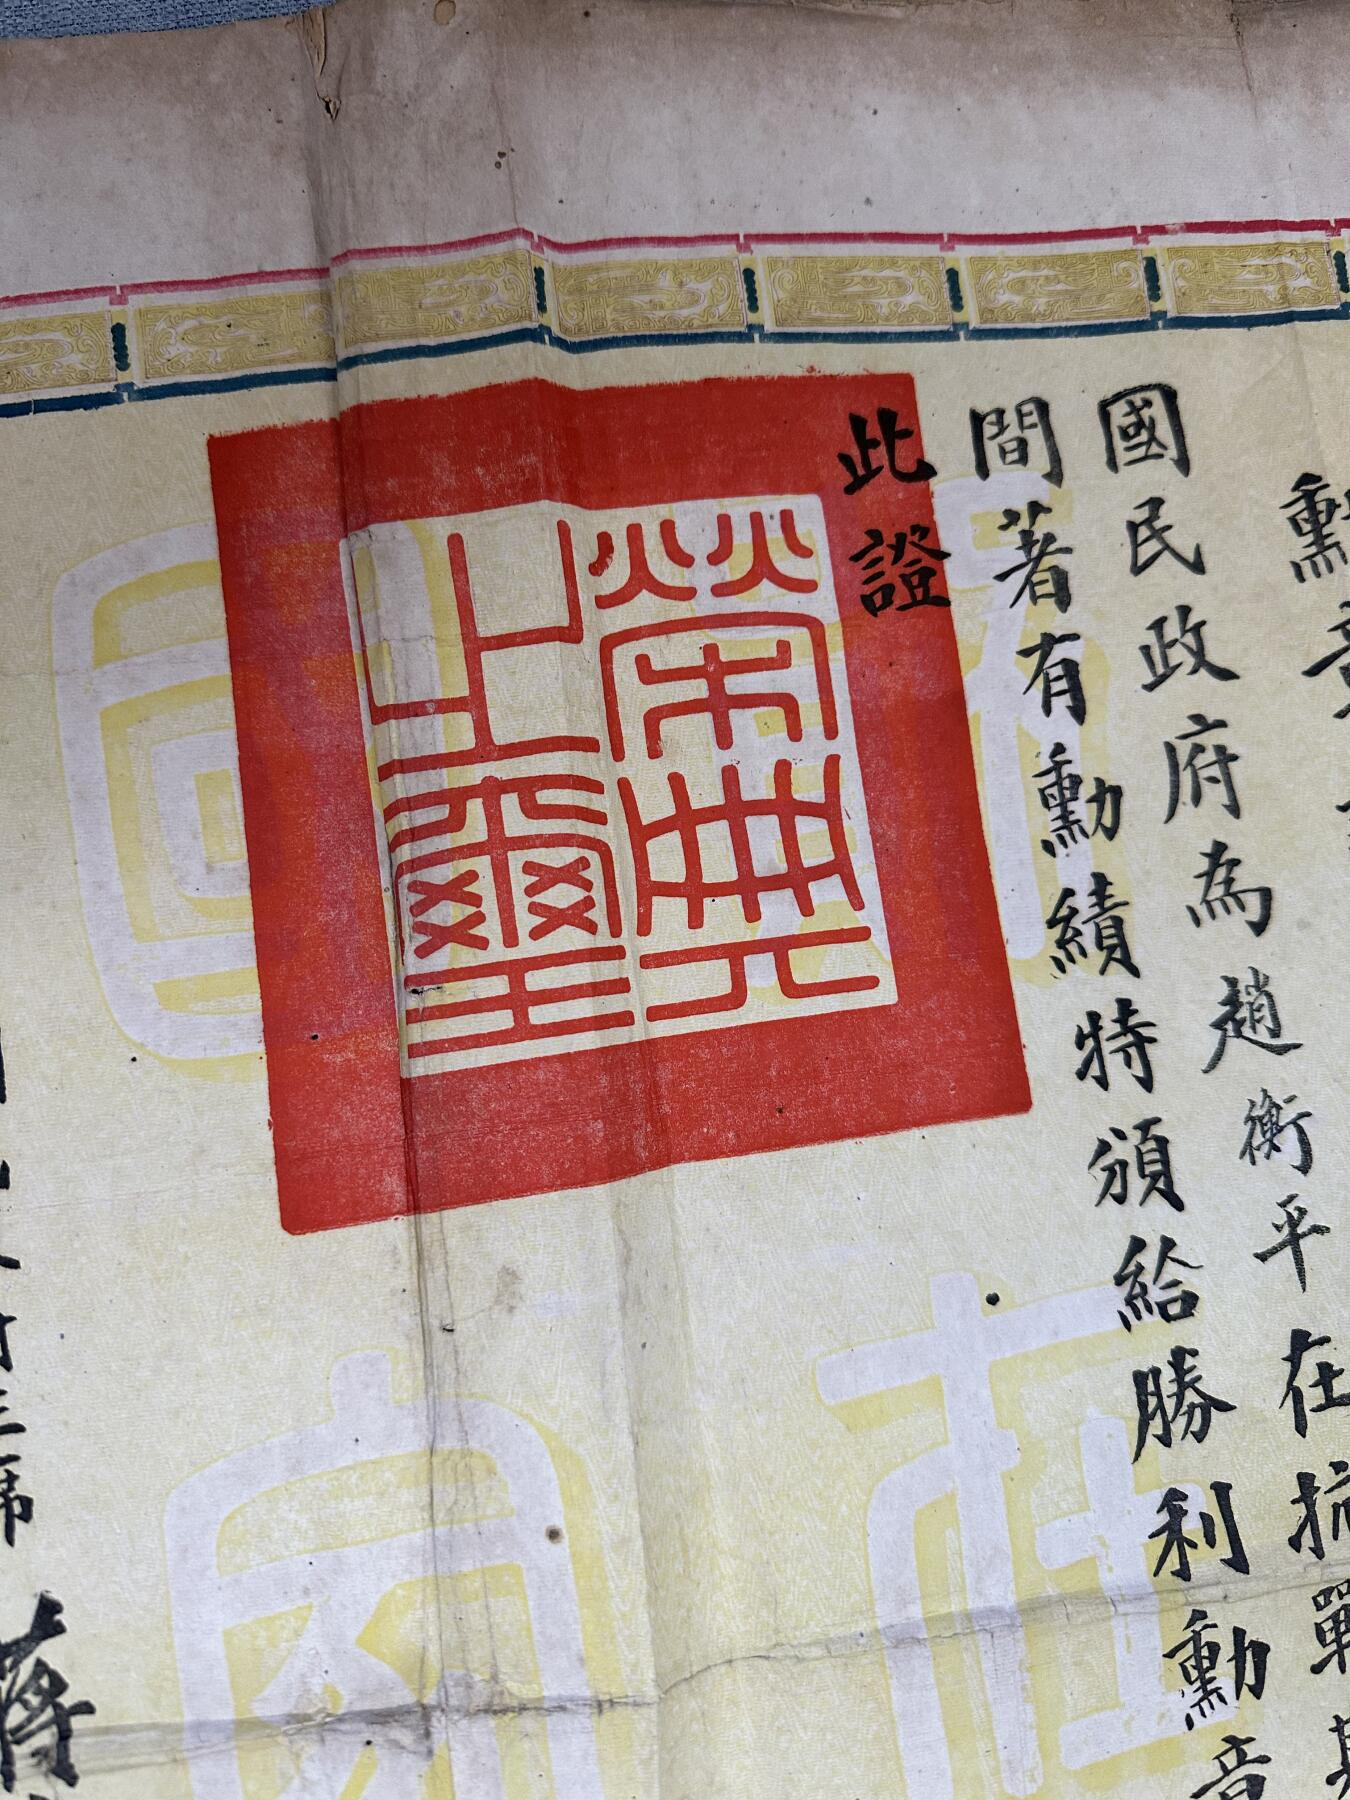 勳章
國民政府為趙衡平在抗戰期
間著有勳績特頒給勝利勳章
此證
榮典
之璽
席
蔣